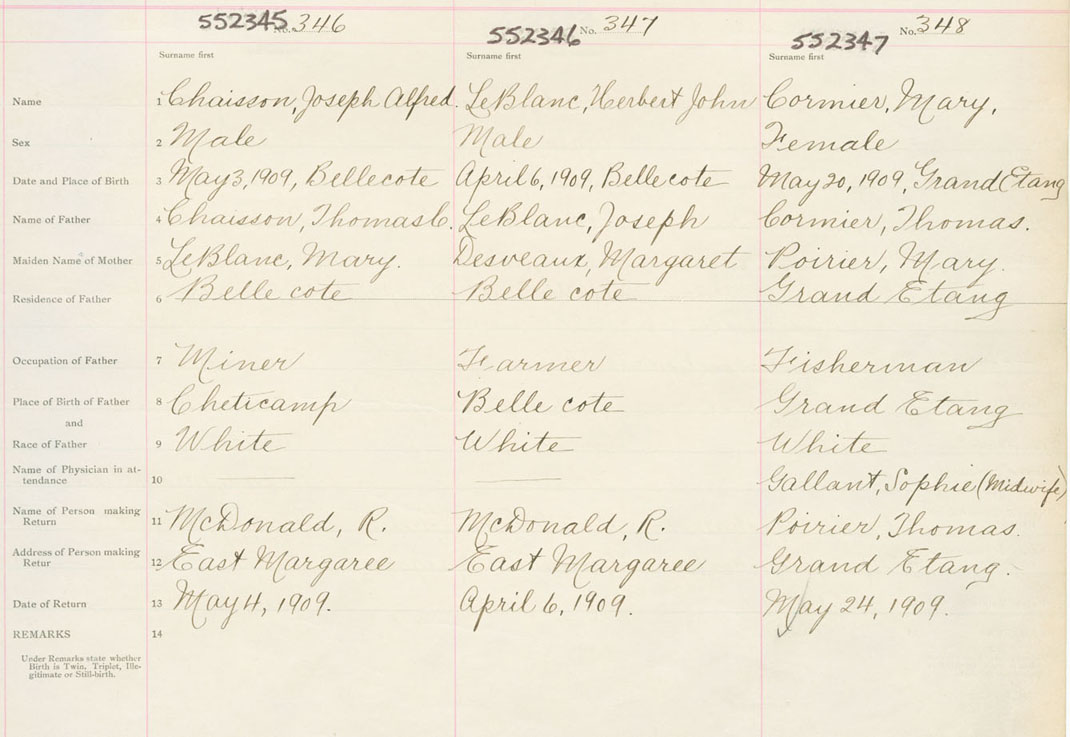 552345 No. 346 552346 No. 347 552347 No. 348
Surname first Surname first Surname first
Name 1 Chaisson, Joseph Alfred. LeBlanc, Herbert John Cormier, Mary,
Sex 2 Male Male Female
Date and Place of Birth 3 May 3, 1909, Bellecote April 6, 1909, Bellecote May 20, 1909, Grand Etang
Name of Father 4 Chaisson, Thomas C. LeBlanc, Joseph Cormier, Thomas.
Maiden Name of Mother 5 LeBlanc, Mary. Desveaux, Margaret Poirier, Mary.
Residence of Father 6 Belle cote Belle cote Grand Etang
Occupation of Father 7 Miner Farmer Fisherman
Place of Birth of Father 8 Cheticamp Belle cote Grand Etang
and
Race of Father 9 White White White
Name of Physician in at-
tendance 10 Gallant, Sophie (Midwife)
Name of Person making
Return 11 McDonald, R. McDonald, R. Poirier, Thomas.
Address of Person making
Retur 12 East Margaree East Margaree Grand Etang.
Date of Return 13 May 4, 1909. April 6, 1909. May 24, 1909.
REMARKS 14
Under Remarks state whether
Birth is Twin, Triplet, Ille-
gitimate or Still-birth.